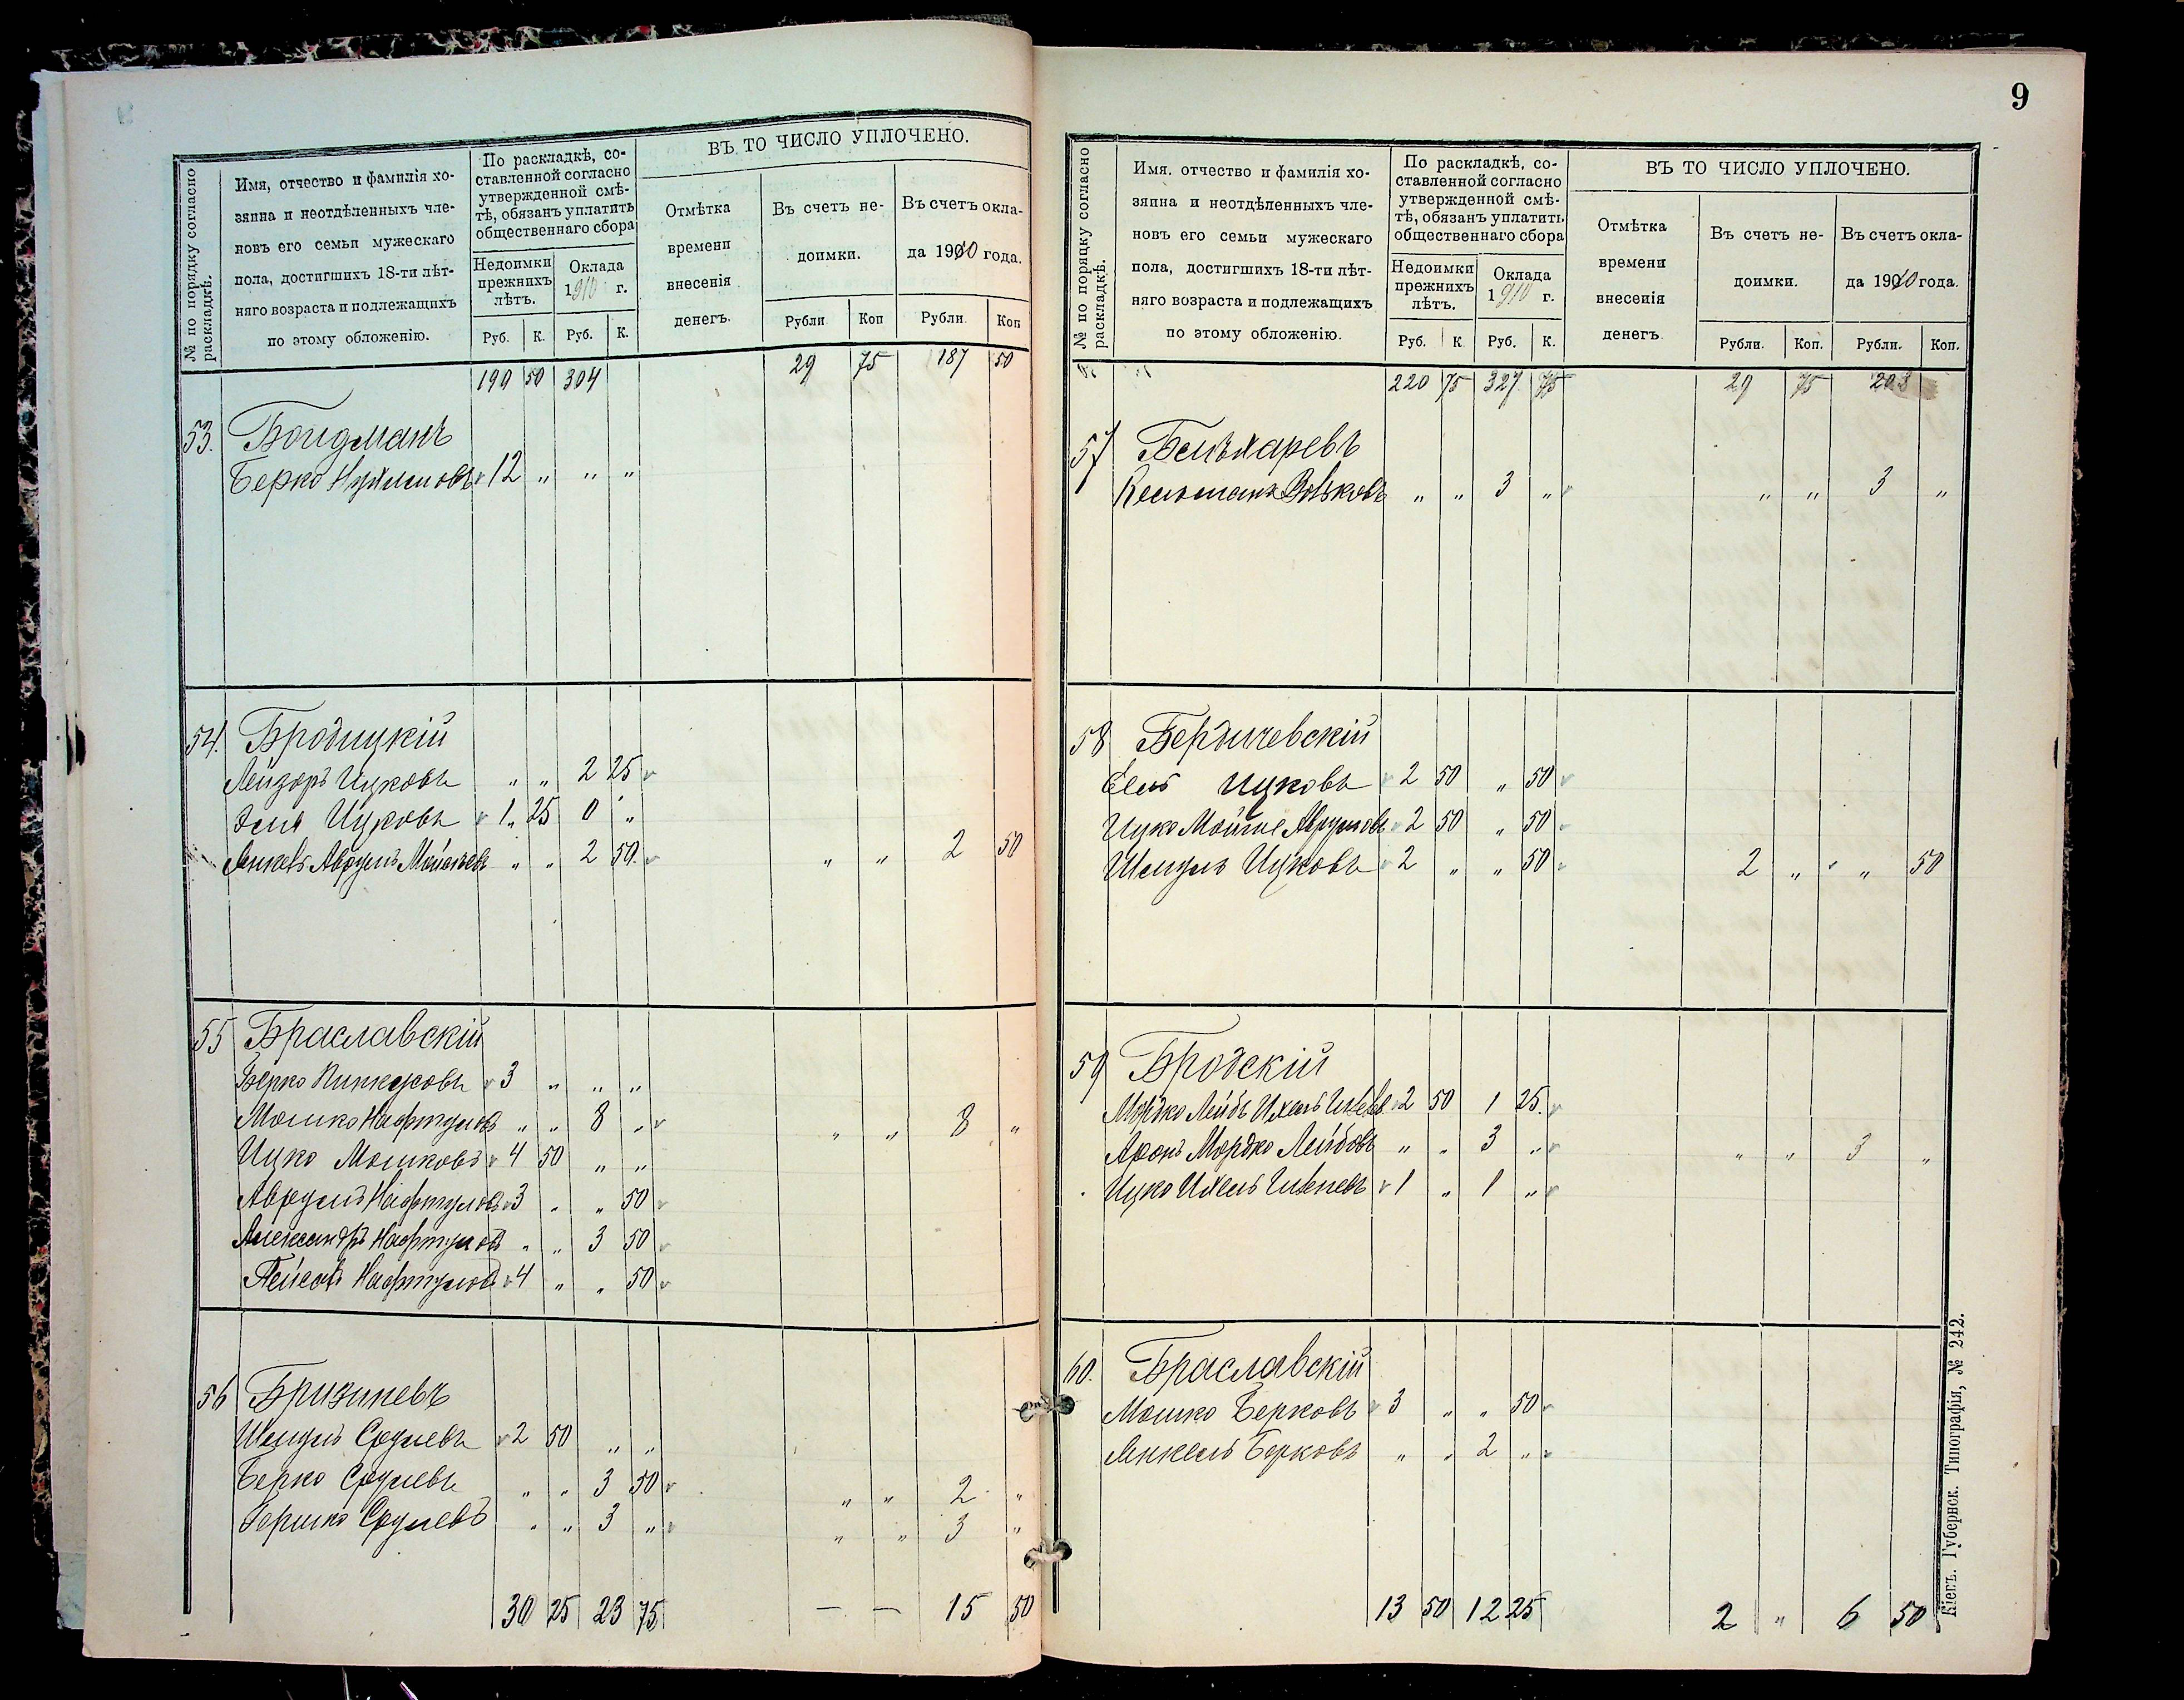 № по порядку согласно раскладкѣ.
Имя, отчество и фамилія хо-
зяина и неотдѣленныхъ чле-
новъ его семьи мужескаго
пола, достигшихъ 18-ти лѣт-
няго возраста и подлежащихъ
по этому обложенію.
По раскладкѣ, со-
ставленной согласно
утвержденной смѣ-
тѣ, обязанъ уплатить
общественнаго сбора
Недоимки
прежнихъ
лѣтъ.
Оклада
1910 г.
Руб. К. Руб. К.
ВЪ ТО ЧИСЛО УПЛОЧЕНО.
Отмѣтка
времени
внесенія
денегъ.
Въ счетъ не-
доимки.
Въ счетъ окла-
да 1910 года.
Рубли Коп Рубли Коп
190 50 304 29 75 187 50
53. Бондманъ
Берко Нухимовъ 12 " " "
54. Бродицкій
Лейзоръ Ицковъ " " 2 25
Эля Ицковъ 1 25 0 "
Янкель Аврумъ " " 2 50 " " 2 50
55 Браславскій
Берко Пинкусовъ 3 " " "
Мошко Нафтуловъ " " 8 " " " 8 "
Ицко Мошковъ 4 50 " "
Аврумъ Нафтуловъ 3 " " 50
Александръ Нафтуловъ " " 3 50
Пейсахъ Нафтуловъ 4 " " 50
56 Бризиневъ
Шмуль Срулевъ 2 50 " "
Берко Срулевъ " " 3 50 " " 2 "
Гершко Срулевъ " " 3 " " " 3 "
30 25 23 75 — — 15 50
9
№ по порядку согласно раскладкѣ.
Имя. отчество и фамилія хо-
зяина и неотдѣленныхъ чле-
новъ его семьи мужескаго
пола, достигшихъ 18-ти лѣт-
няго возраста и подлежащихъ
по этому обложенію.
По раскладкѣ, со-
ставленной согласно
утвержденной смѣ-
тѣ, обязанъ уплатить
общественнаго сбора
Недоимки
прежнихъ
лѣтъ.
Оклада
1910 г.
Руб. К Руб. К.
ВЪ ТО ЧИСЛО УПЛОЧЕНО.
Отмѣтка
времени
внесенія
денегъ
Въ счетъ не-
доимки.
Въ счетъ окла-
да 1910 года.
Рубли. Коп. Рубли. Коп.
220 75 327 75 29 75 203
57 Бельхаревъ
Кельманъ Вольковъ " " 3 " " " 3 "
58 Бердичевскій
Ель Ицковъ 2 50 " 50
Ицко Мойше Аврумовъ 2 50 " 50
Шмуль Ицковъ 2 " " 50 2 " " 50
59 Бродскій
Мордко Лейбъ Ихель 2 50 1 25
Аронъ Мордко Лейбовъ " " 3 " " " 3 "
Ицко Ихель 1 " 1 "
60. Браславскій
Мошко Берковъ 3 " " 50
Янкель Берковъ " " 2 "
13 50 12 25 2 " 6 50
Кіевъ. Губернск. Типографія, № 242.